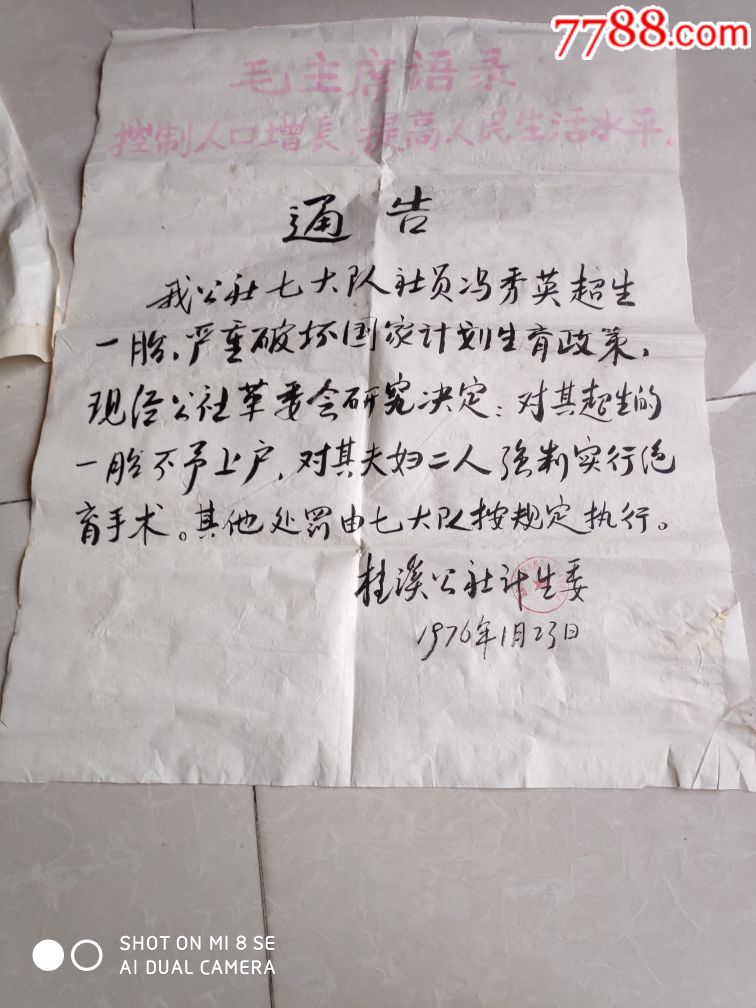 7788.com
毛主席语录
控制人口增長，提高人民生活水平。
通告
我公社七大队社员冯秀英超生
一胎，严重破坏国家计划生育政策，
现经公社革委会研究决定：对其超生的
一胎不予上户，对其夫妇二人强制实行绝
育手术。其他处罚由七大队按规定执行。
桂溪公社计生委
1976年1月23日
SHOT ON MI 8 SE
AI DUAL CAMERA